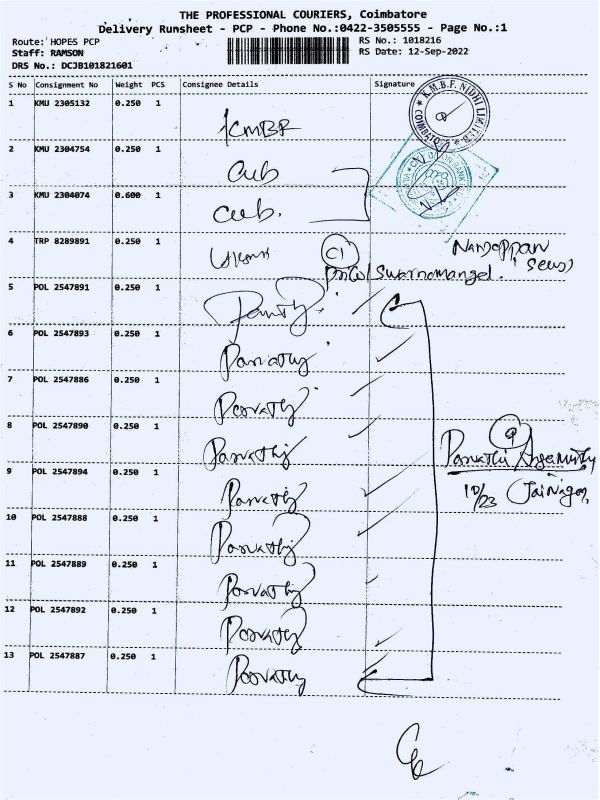 THE PROFESSIONAL COURIERS, Coimbatore
Delivery Runsheet - PCP - Phone No.:0422-3505555 - Page No.:1
Route: HOPES PCP RS No.: 1018216
Staff: RAMSON RS Date: 12-Sep-2022
DRS No.: DCJB101821601
S No Consignment No Weight PCS Consignee Details Signature
K.M.B.F. NIDHI LIMITED
COIMBATORE
1 KMU 2305132 0.250 1
KMBF
2 KMU 2304754 0.250 1
CUB
3 KMU 2304074 0.600 1
CUB.
4 TRP 8289891 0.250 1
Nanjappan
Swarnamangel.
5 POL 2547891 0.250 1
6 POL 2547893 0.250 1
Parvathy
7 POL 2547886 0.250 1
Parvathy
8 POL 2547890 0.250 1
Parvathy
9 POL 2547894 0.250 1
Parvathy
Parvathi
10/23 Jai Nagar,
10 POL 2547888 0.250 1
Parvathy
11 POL 2547889 0.250 1
Parvathy
12 POL 2547892 0.250 1
Parvathy
13 POL 2547887 0.250 1
Parvathy